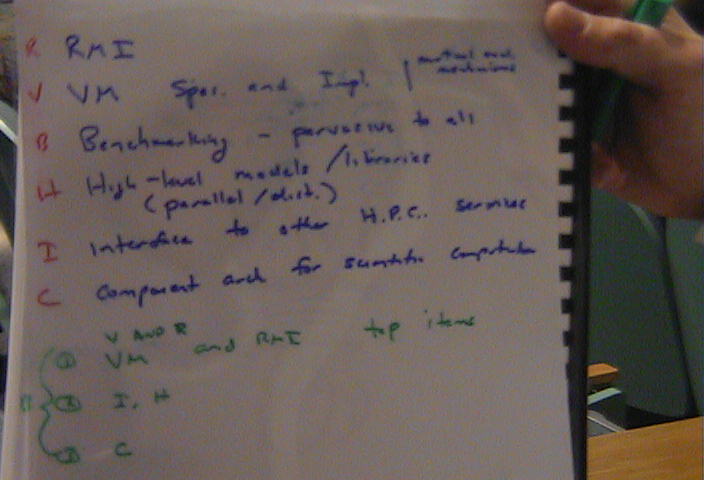 R RMI
V VM Spec. and Impl.
mechanisms
B Benchmarking - pervasive to all
H High-level models / libraries
(parallel / dist.)
I Interface to other H.P.C. services
C Component arch for scientific computation
V AND R
① VM and RMI top items
② I, H
③ C